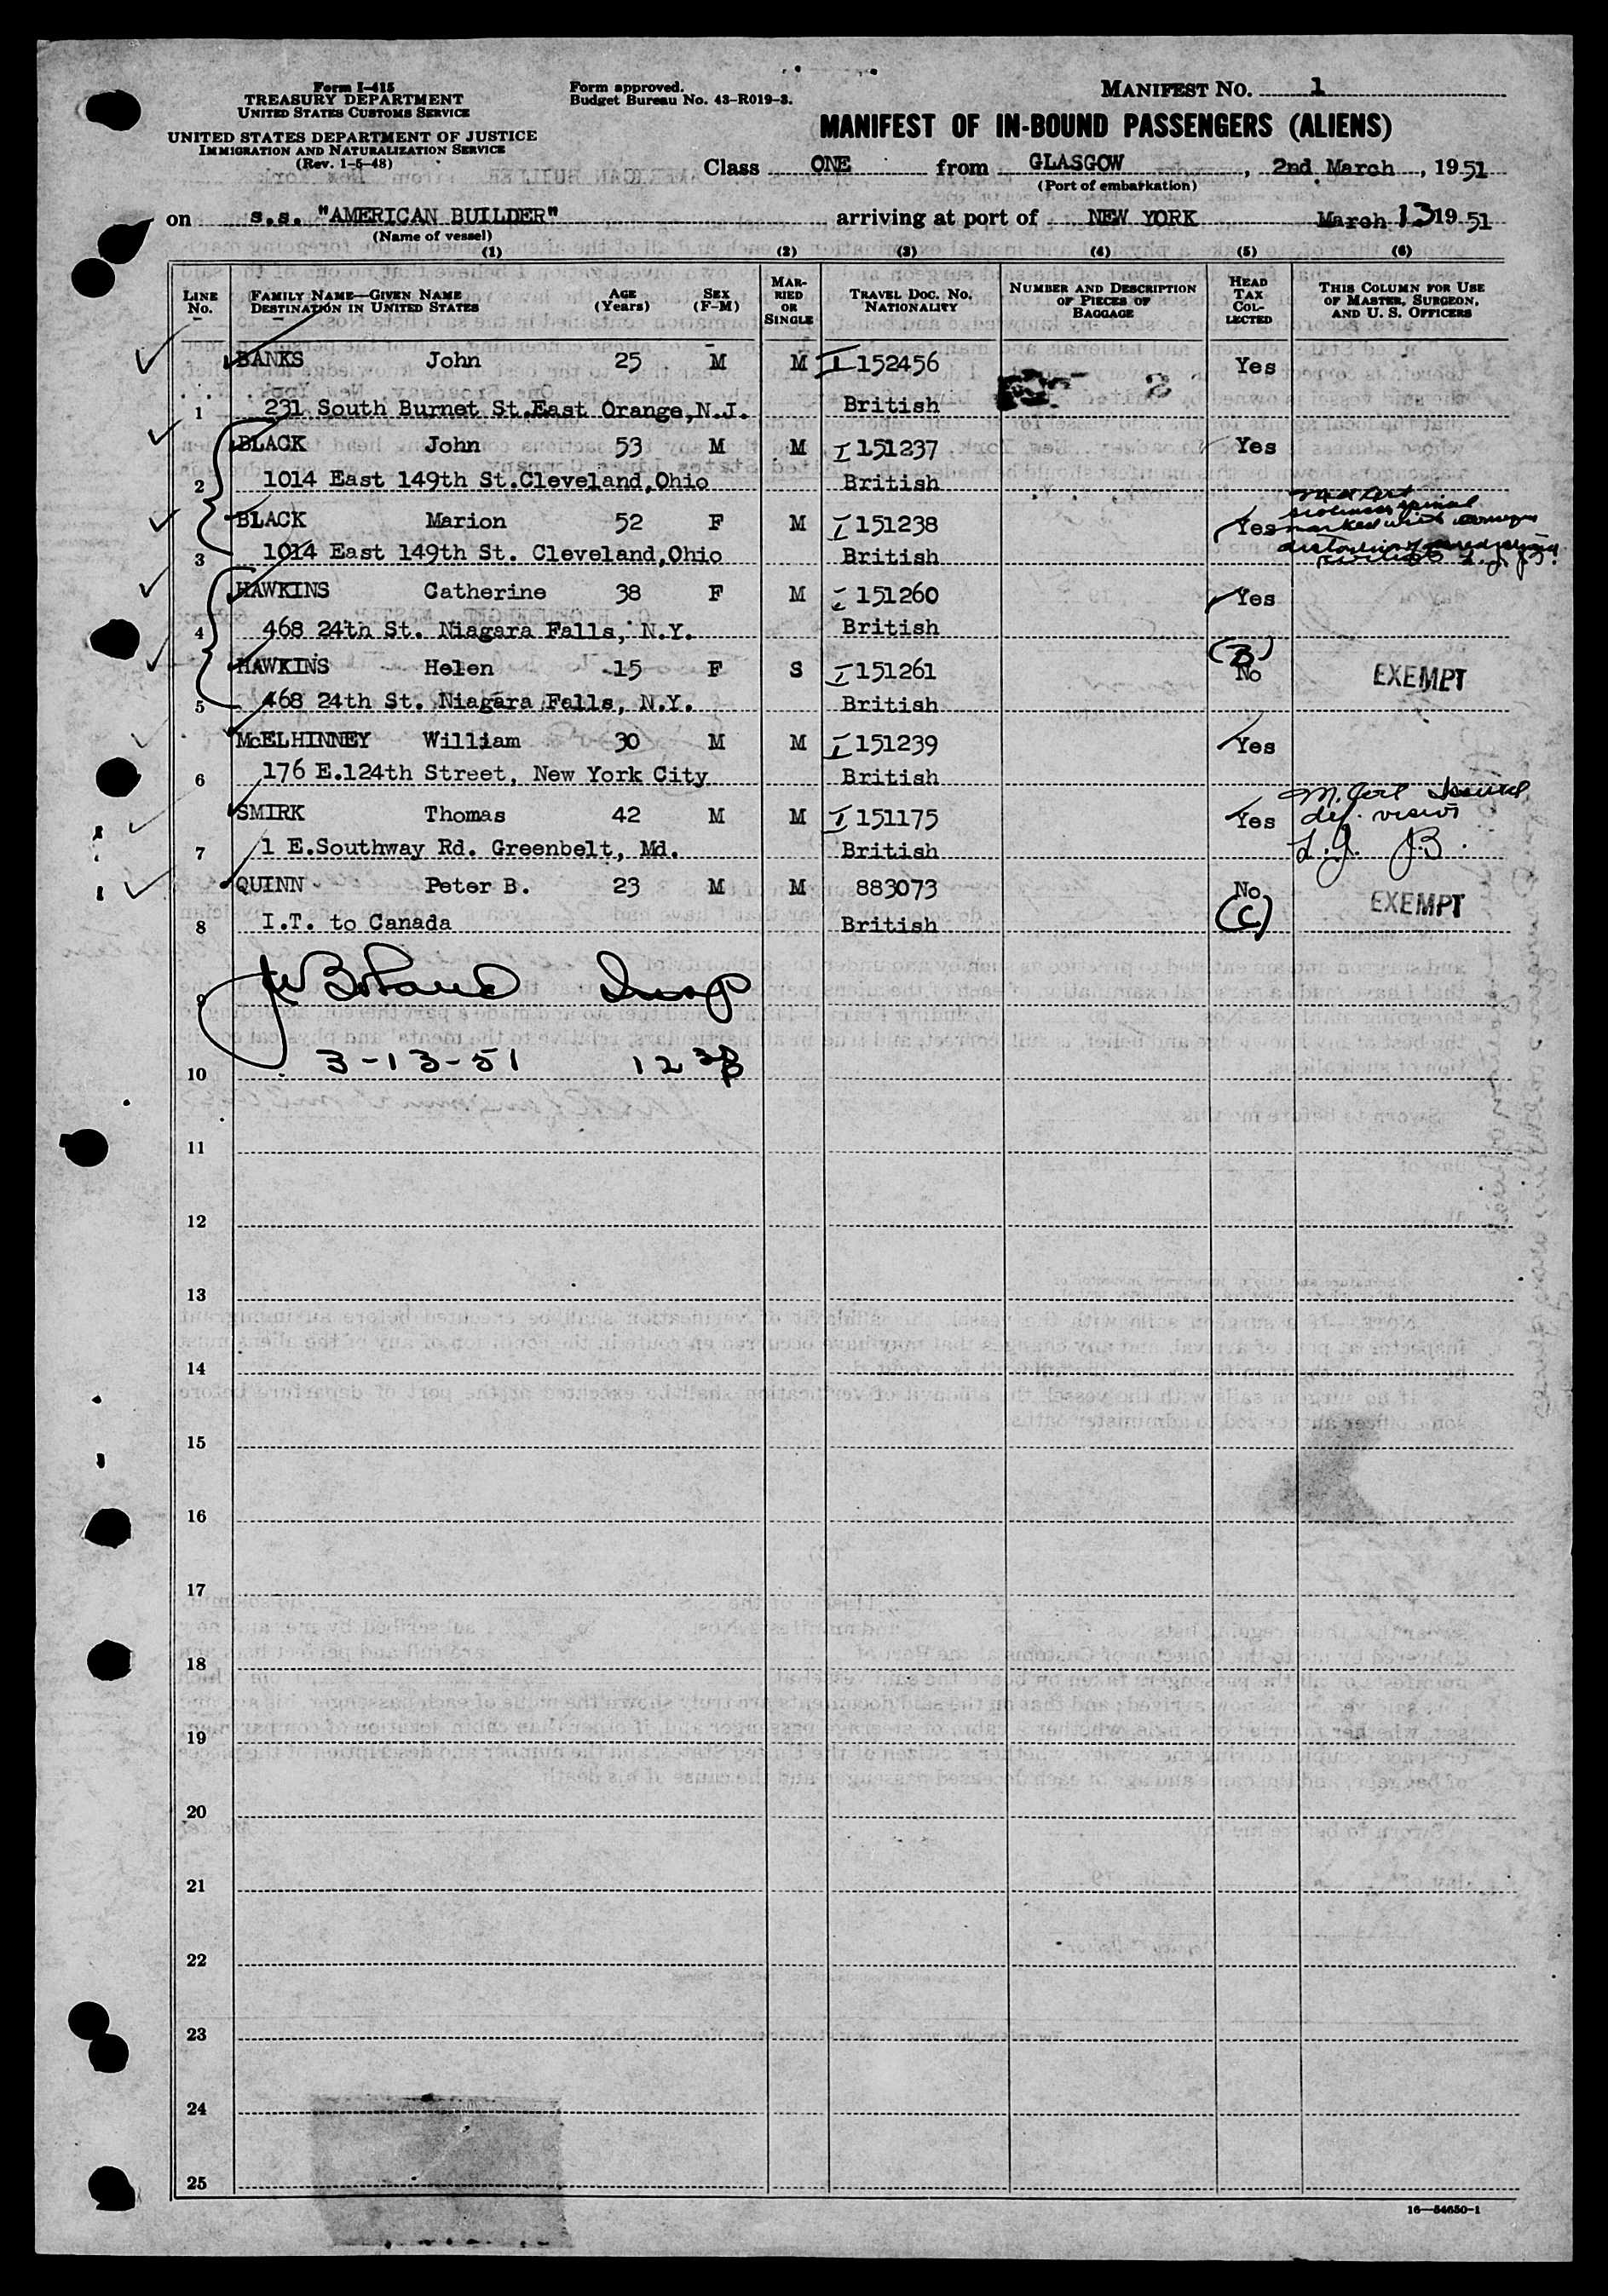 Form I-415
TREASURY DEPARTMENT
UNITED STATES CUSTOMS SERVICE
UNITED STATES DEPARTMENT OF JUSTICE
IMMIGRATION AND NATURALIZATION SERVICE
(Rev. 1-5-48)
Form approved.
Budget Bureau No. 43-R019-3.
MANIFEST No. 1
MANIFEST OF IN-BOUND PASSENGERS (ALIENS)
Class ONE from GLASGOW, 2nd March, 1951
(Port of embarkation)
on s.s. "AMERICAN BUILDER" arriving at port of NEW YORK March 13 1951
(Name of vessel)
(1) (2) (3) (4) (5) (6)
LINE No. FAMILY NAME—GIVEN NAME DESTINATION IN UNITED STATES AGE (Years) SEX (F-M) MARRIED OR SINGLE TRAVEL DOC. NO. NATIONALITY NUMBER AND DESCRIPTION OF PIECES OF BAGGAGE HEAD TAX COLLECTED THIS COLUMN FOR USE OF MASTER, SURGEON, AND U. S. OFFICERS
BANKS John 25 M M I 152456 Yes
1 231 South Burnet St.East Orange,N.J. British
BLACK John 53 M M I 151237 Yes
2 1014 East 149th St.Cleveland,Ohio British
BLACK Marion 52 F M I 151238 Yes
3 1014 East 149th St. Cleveland,Ohio British
HAWKINS Catherine 38 F M I 151260 Yes
4 468 24th St. Niagara Falls, N.Y. British
HAWKINS Helen 15 F S I 151261 (B) No EXEMPT
5 468 24th St. Niagara Falls, N.Y. British
McELHINNEY William 30 M M I 151239 Yes
6 176 E.124th Street, New York City British
SMIRK Thomas 42 M M I 151175 Yes M. Cert def. vision
7 1 E.Southway Rd. Greenbelt, Md. British
QUINN Peter B. 23 M M 883073 No (C) EXEMPT
8 I.T. to Canada British
9 Insp
10 3-13-51
11
12
13
14
15
16
17
18
19
20
21
22
23
24
25
16—54650-1